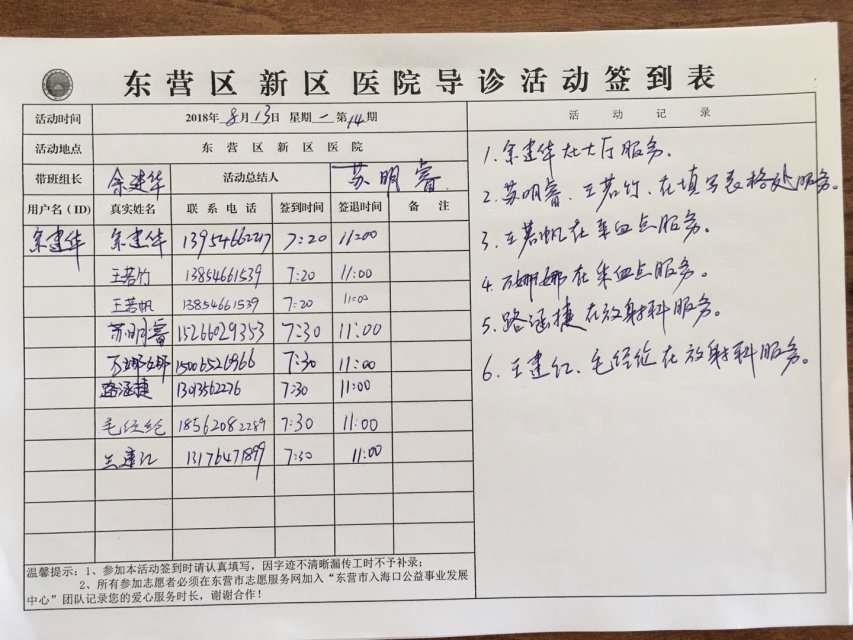 东营区新区医院导诊活动签到表
活动时间 2018年8月13日 星期一 第14期
活动地点 东营区新区医院
带班组长 余建华 活动总结人 苏明睿
用户名(ID) 真实姓名 联系电话 签到时间 签退时间 备注
余建华 余建华 13954662217 7:20 11:00
王若竹 13854661539 7:20 11:00
王若帆 13854661539 7:20 11:00
苏明睿 15266029353 7:30 11:00
万娜娜 15065526966 7:30 11:00
路涵捷 13013562276 7:30 11:00
毛经纶 18562082289 7:30 11:00
王建红 13176471899 7:30 11:00
温馨提示：1、参加本活动签到时请认真填写，因字迹不清晰漏传工时不予补录；
2、所有参加志愿者必须在东营市志愿服务网加入“东营市入海口公益事业发展
中心”团队记录您的爱心服务时长，谢谢合作！
活动记录
1.余建华在大厅服务。
2.苏明睿、王若竹、在填写表格处服务。
3.王若帆在采血点服务。
4.万娜娜在采血点服务。
5.路涵捷在放射科服务。
6.王建红、毛经纶在放射科服务。